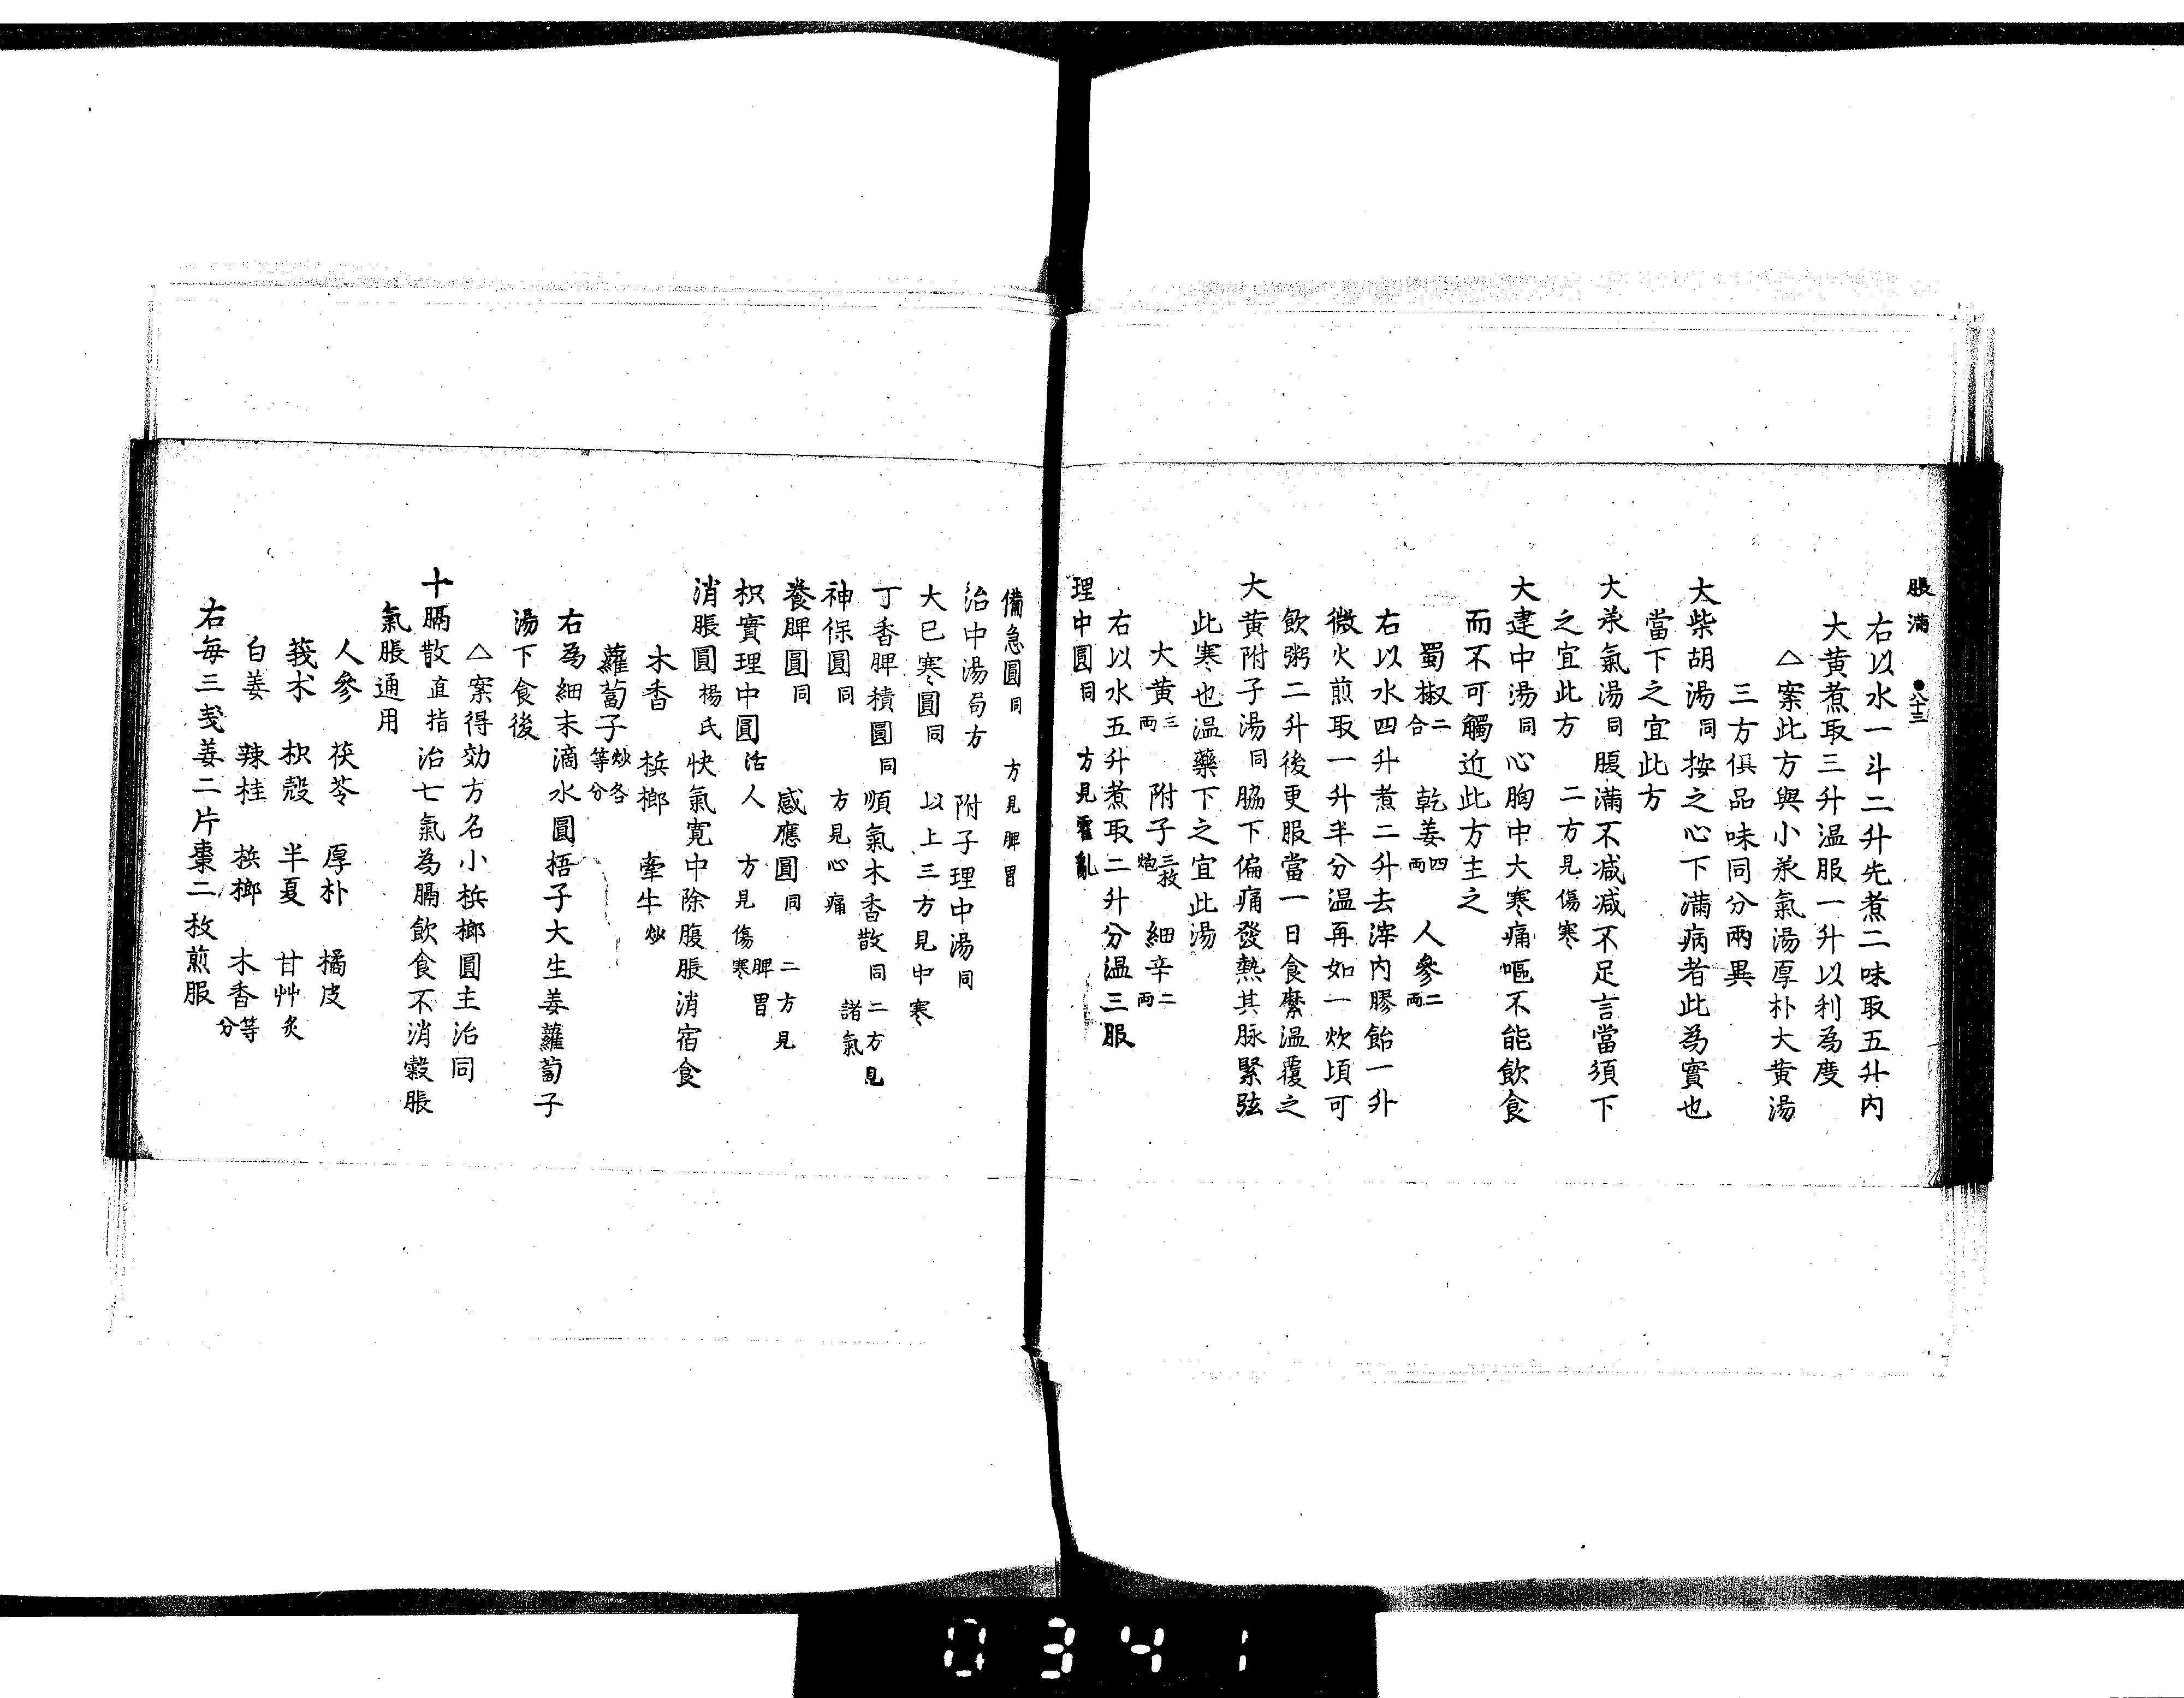 脹滿 ●八十三
右以水一斗二升先煮二味取五升内
大黄煮取三升温服一升以利為度
△案此方與小承氣湯厚朴大黄湯
三方俱品味同分兩異
大柴胡湯同 按之心下滿病者此為實也
當下之宜此方
大承氣湯同 腹滿不减减不足言當須下
之宜此方 二方見傷寒
大建中湯同 心胸中大寒痛嘔不能飲食
而不可觸近此方主之
蜀椒二合 乾姜四兩 人參二兩
右以水四升煮二升去滓内膠飴一升
微火煎取一升半分温再如一炊頃可
飲粥二升後更服當一日食糜温覆之
大黄附子湯同 脇下偏痛發熱其脉緊弦
此寒也温藥下之宜此湯
大黄三兩 附子三枚炮 細辛二兩
右以水五升煮取二升分温三服
理中圓同 方見霍亂
備急圓同 方見脾胃
治中湯局方 附子理中湯同
大已寒圓同 以上三方見中寒
丁香脾積圓同 順氣木香散同 二方見諸氣
神保圓同 方見心痛
養脾圓同 感應圓同 二方見脾胃
枳實理中圓活人 方見傷寒
消脹圓楊氏 快氣寛中除腹脹消宿食
木香 梹榔 牽牛炒
蘿蔔子炒各等分
右為細末滴水圓梧子大生姜蘿蔔子
湯下食後
△案得効方名小梹榔圓主治同
十膈散直指 治七氣為膈飲食不消穀脹
氣脹通用
人參 茯苓 厚朴 橘皮
莪朮 枳殼 半夏 甘艸炙
白姜 辣桂 梹榔 木香等分
右毎三戔姜二片棗二枚煎服
0341